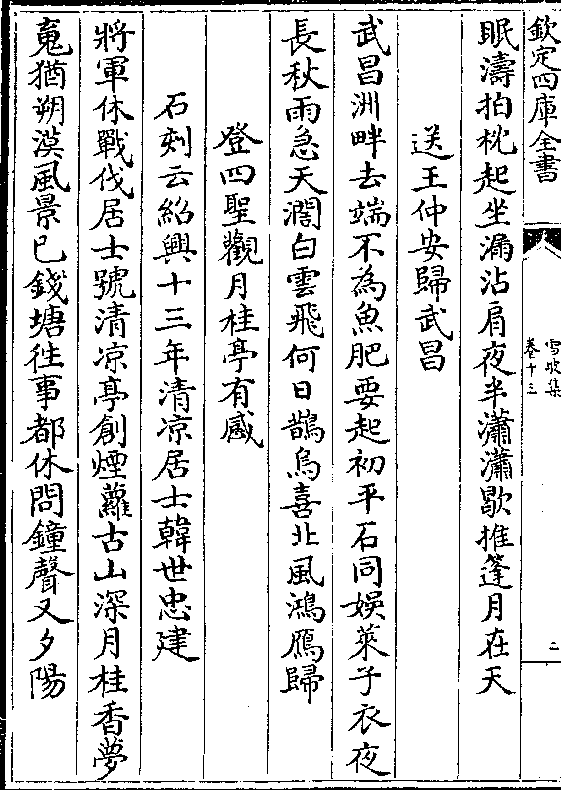 欽定四庫全書
雪坡集
卷十三
二
眠濤拍枕起坐漏沾肩夜半瀟瀟歇推篷月在天
送王仲安歸武昌
武昌洲畔去端不為魚肥要起初平石同娛萊子衣夜
長秋雨急天濶白雲飛何日鵲烏喜北風鴻鴈歸
登四聖觀月桂亭有感
石刻云紹興十三年清凉居士韓世忠建
將軍休戰伐居士號清凉亭創煙蘿古山深月桂香夢
䰟猶朔漠風景已錢塘徃事都休問鐘聲又夕陽